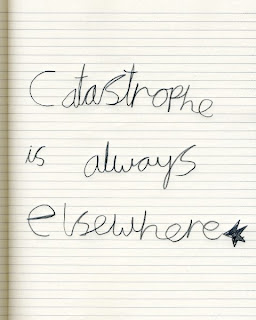 Catastrophe
is always
elsewhere